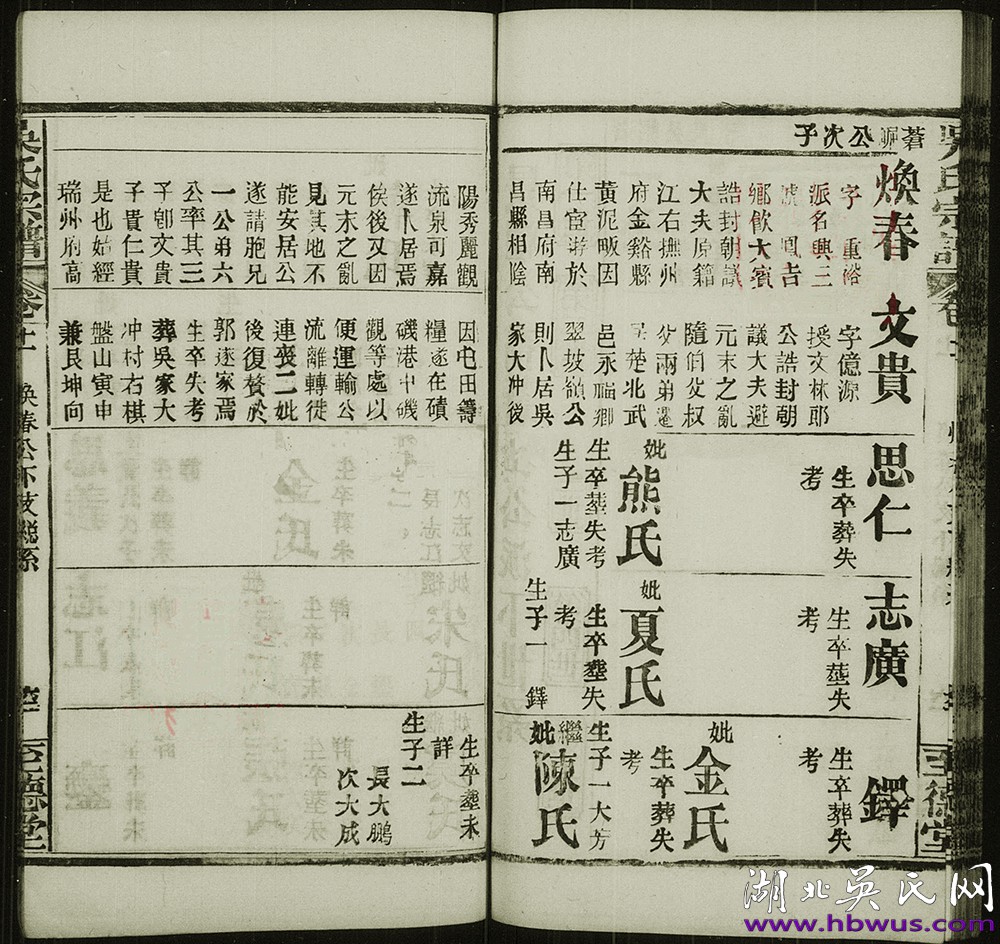 蒼𡶶公次子
煥春
字重裕
派名興三
號鳳吉
鄉飲大賓
誥封朝議
大夫原籍
江右撫州
府金谿縣
黃泥畈因
仕宦游於
南昌府南
昌縣相陰
文貴
字億源
授文林郎
公誥封朝
議大夫避
元末之亂
隨伯父叔
父兩弟遷
吴楚北武
邑永福鄉
翠坡嶺公
則卜居吳
家大冲後
思仁
生卒葬失
考
妣熊氏
生卒葬失考
生子一志廣
志廣
生卒塟失
考
妣夏氏
生卒塟失
考
生子一
鐸
鐸
生卒葬失
考
妣金氏
生卒葬失
考
生子一大芳
繼妣陳氏
陽秀麗觀
流泉可嘉
遂卜居焉
俟後又因
元末之亂
見其地不
能安居公
遂請胞兄
一公弟六
公率其三
子郎文貴
子貴仁貴
是也始經
瑞州府高
因屯田籌
糧遂在磧
磯港中磯
觀等處以
便運輸公
流離轉徙
連喪二妣
後復贅於
郭遂家焉
生卒失考
葬吳家大
冲村右棋
盤山寅申
兼艮坤向
生卒塟未
詳
生子二
長大鵬
次大成
吳氏宗譜
卷十一
煥春公下支總系
至德堂
吳氏宗譜
至德堂
湖北吳氏网
www.hbwus.com